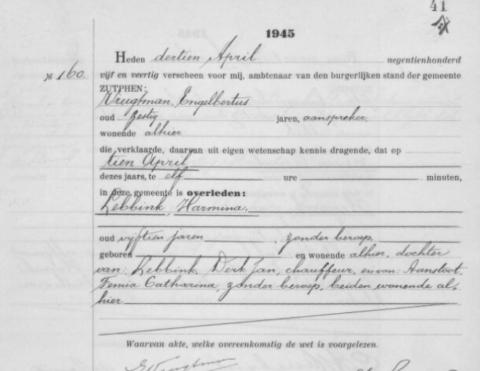 41
1945
Heden dertien April negentienhonderd
№ 160.
vijf en veertig verscheen voor mij, ambtenaar van den burgerlijken stand der gemeente
ZUTPHEN:
Vrugtman, Engelbertus
oud zestig jaren, aanspreker,
wonende alhier
die verklaarde, daarvan uit eigen wetenschap kennis dragende, dat op
tien April
dezes jaars, te elf ure minuten,
in deze gemeente is overleden:
Lebbink, Harmina.
oud vijftien jaren, zonder beroep
geboren en wonende alhier, dochter
van Lebbink, Derk Jan, chauffeur, en van Aanstoot,
Femia Catharina, zonder beroep, beiden wonende al-
hier
Waarvan akte, welke overeenkomstig de wet is voorgelezen.
EVrugtman